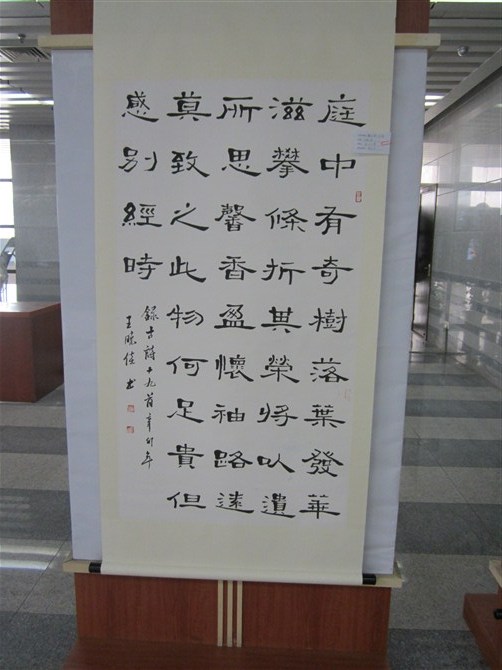 庭中有奇樹落葉發華
滋攀條折其榮將以遺
所思馨香盈懷袖路遠
莫致之此物何足貴但
感別經時
錄古詩十九首辛卯年
王 书